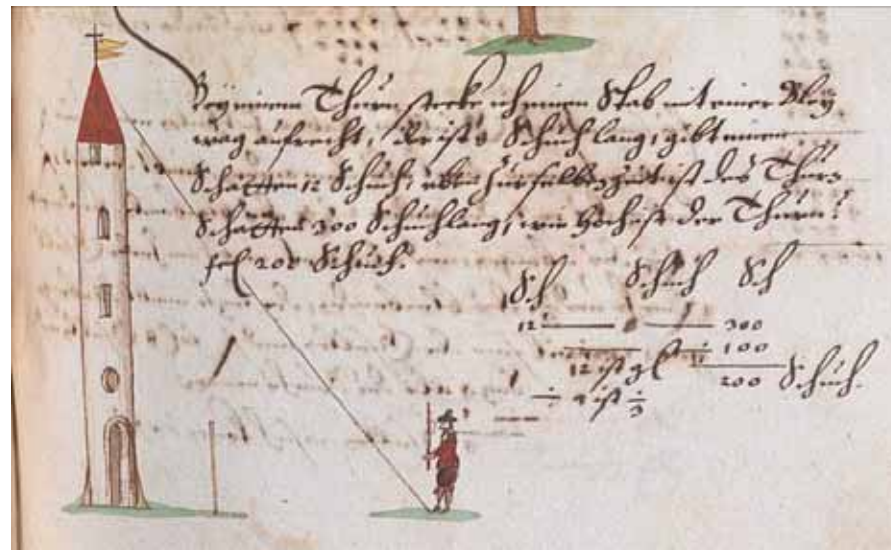 Bey einem Thurn stecke ich einen Stab mit einer Bley
wag aufrecht, der ist 8 Schuch lang, gibt einen
Schatten 12 Schuch, eben zur selben zeit ist des Thurns
Schatten 300 Schuch lang, wie hoch ist der Thurn?
200 Schuch.
Sch Schuch Sch
12 — 8 — 300
12 ist 100
200 Schuch.
4 ist